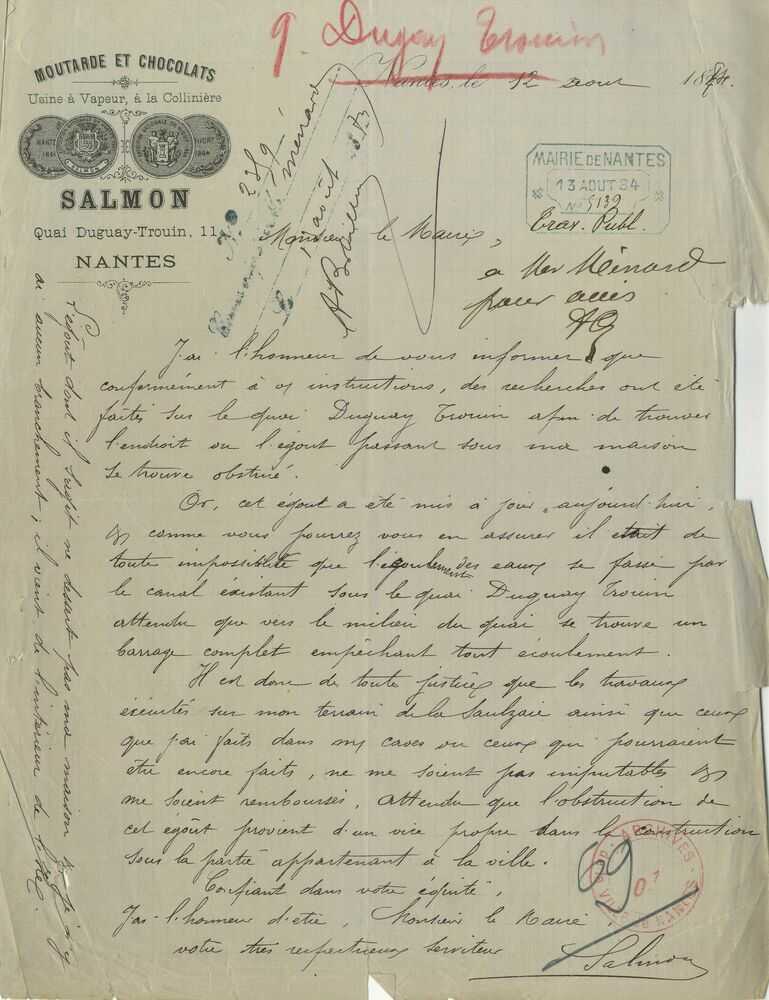 9 Duguay Trouin
MOUTARDE ET CHOCOLATS
Usine à Vapeur, à la Collinière
SALMON
Quai Duguay-Trouin, 11
NANTES
Nantes, le 12 Aout 1884.
No 289
Menard
août
MAIRIE DE NANTES
13 AOUT 84
No 5139
Trav. Publ.
a Mer Ménard
pour avis
Monsieur le Maire,
J'ai l'honneur de vous informer que
conformément à vos instructions, des recherches ont été
faites sur le quai Duguay Trouin afin de trouver
l'endroit ou l'égout passant sous ma maison
se trouve obstrué.
Or, cet égout a été mis à jour, aujourd'hui,
et comme vous pourrez vous en assurer il était de
toute impossibilité que l'écoulement des eaux se fasse par
le canal éxistant sous le quai Duguay Trouin
attendu que vers le milieu du quai se trouve un
barrage complet empêchant tout écoulement.
Il est donc de toute justice que les travaux
éxécutés sur mon terrain de la Saulzaie ainsi que ceux
que j'ai faits dans mes caves ou ceux qui pourraient
etre encore faits, ne me soient pas imputables et
me soient remboursés, attendu que l'obstruction de
cet égoût provient d'un vice propre dans la construction
sous la partie appartenant à la ville.
Confiant dans votre équité,
J'ai l'honneur d'etre, Monsieur le Maire,
votre tres respectueux serviteur
Salmon
L'égout dont il s'agit ne dessert pas ma maison & je n'y
ai aucun branchement; il vient de l'intérieur de l'île.
ARCHIVES
VILLE D NANTES
69